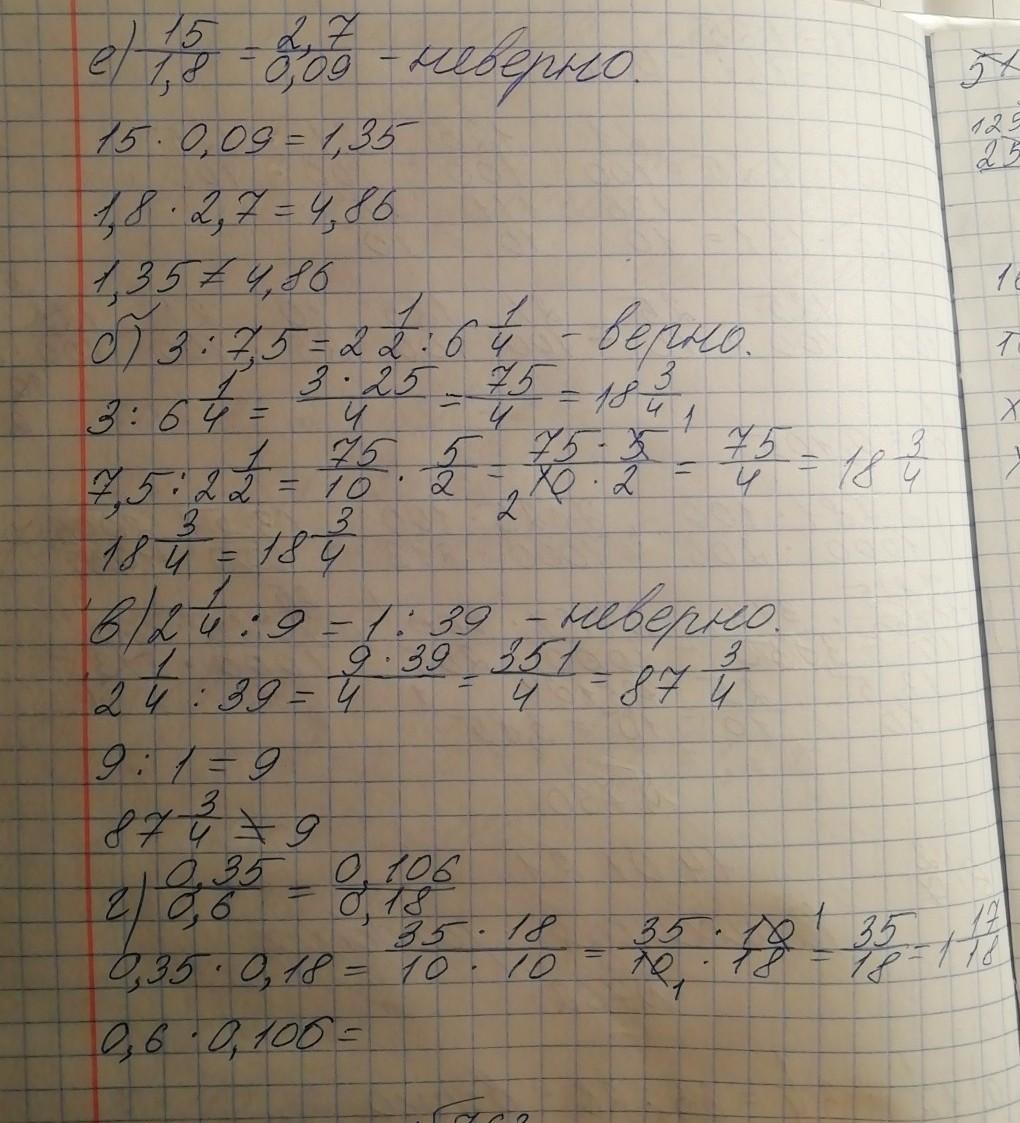 е) 15/1,8 = 2,7/0,09 - неверно.
15 · 0,09 = 1,35
1,8 · 2,7 = 4,86
1,35 ≠ 4,86
б) 3 : 7,5 = 2 1/2 : 6 1/4 - верно.
3 : 6 1/4 = 3 · 25/4 = 75/4 = 18 3/4
7,5 : 2 1/2 = 75/10 · 5/2 = 75 · 5 1/2 10 · 2 = 75/4 = 18 3/4
18 3/4 = 18 3/4
в) 2 1/4 : 9 = 1 : 39 - неверно.
2 1/4 : 39 = 9 · 39/4 = 351/4 = 87 3/4
9 : 1 = 9
87 3/4 ≠ 9
г) 0,35/0,6 = 0,106/0,18
0,35 · 0,18 = 35 · 18/10 · 10 = 35 · 10 1/10 1 · 18 = 35/18 = 1 17/18
0,6 · 0,106 =